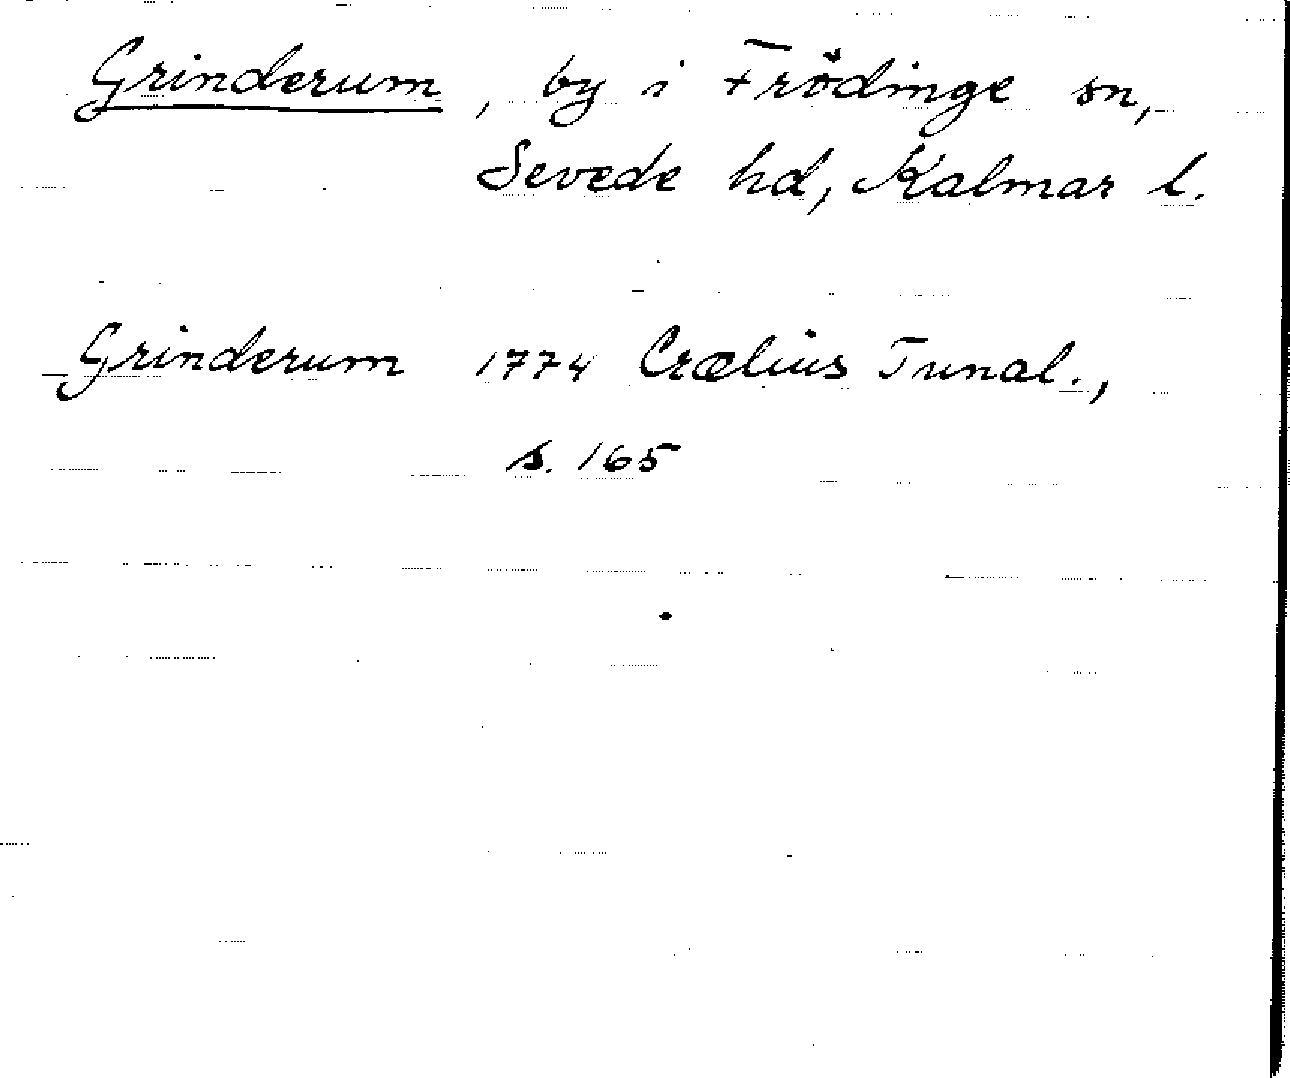 Grinderum, by i Frödinge sn,
Sevede hd, Kalmar l.
Grinderum 1774 Crælius Tunal.,
s. 165